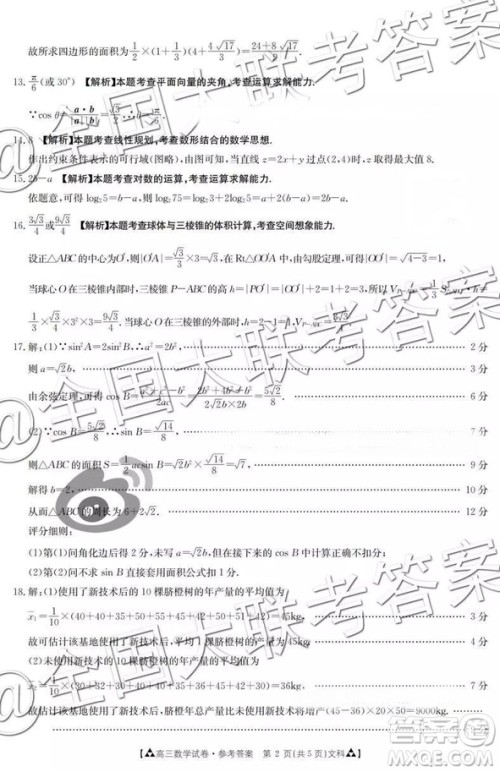 故所求四边形的面积为1/2×(1+1/3)(4+4√17/3)=(24+8√17)/9.
13. π/6(或30°) 【解析】本题考查平面向量的夹角,考查运算求解能力.
∵cos θ=
14. 8 【解析】本题考查线性规划,考查数形结合的数学思想.
作出约束条件表示的可行域(图略),由图可知,当直线z=2x+y过点(2,4)时,z取得最大值8.
15. 2b-a 【解析】本题考查对数的运算,考查运算求解能力.
依题意,可得log5=b-a,则log75=log3+2log5=a+2(b-a)=2b-a.
16. 3√3/4或9√3/4 【解析】本题考查球体与三棱锥的体积计算,考查空间想象能力.
设正△ABC的中心为O′,则|O′A|=√3/3×3=√3,在Rt△OO′A中,由勾股定理,可得|OO′|=√(4-3)=1.
当球心O在三棱锥内部时,三棱锥P-ABC的高h=|PO′|=|OO′|+2=1+2=3,所以
1/3×√3/4×3²×3=9√3/4.当球心O在三棱锥的外部时,
17. 解:(1)∵sin²A=2sin²B,∴a²=2b², 2分
则a=√2b. 3分
由余弦定理,可得cos B= =5√2/8. 6分
(2)∵cos B=5√2/8,∴sin B=√14/8. 7分
则△ABC的面积S=1/2acsin B=√2b²×√14/8=√7, 9分
解得b=2, 10分
从而△ABC的周长为6+2√2. 12分
评分细则:
(1)第(1)问角化边后得2分,未写a=√2b,但在接下来的cos B中计算正确,不扣分;
(2)第(2)问不求sin B直接套面积公式
18. 解:(1)使用了新技术后的10棵脐橙树的年产量的平均值为
x̄₁=1/10×(40+40+35+50+55+45+42+50+51+42)=45kg, 3分
故可估计该基地使用了新技术后,平均1棵脐橙树的产量为45kg. 4分
(2)未使用新技术的10棵脐橙树的年产量的平均值为
x̄₂=1/10×(30+32+30+40+40+35+36+45+42+30)=36kg, 7分
故估计该基地使用新技术后比未使用新技术的年总产量将增产(45-36)×20×50=9000kg.
高三数学试卷·参考答案 第2页(共5页)文科
@全国大联考答案